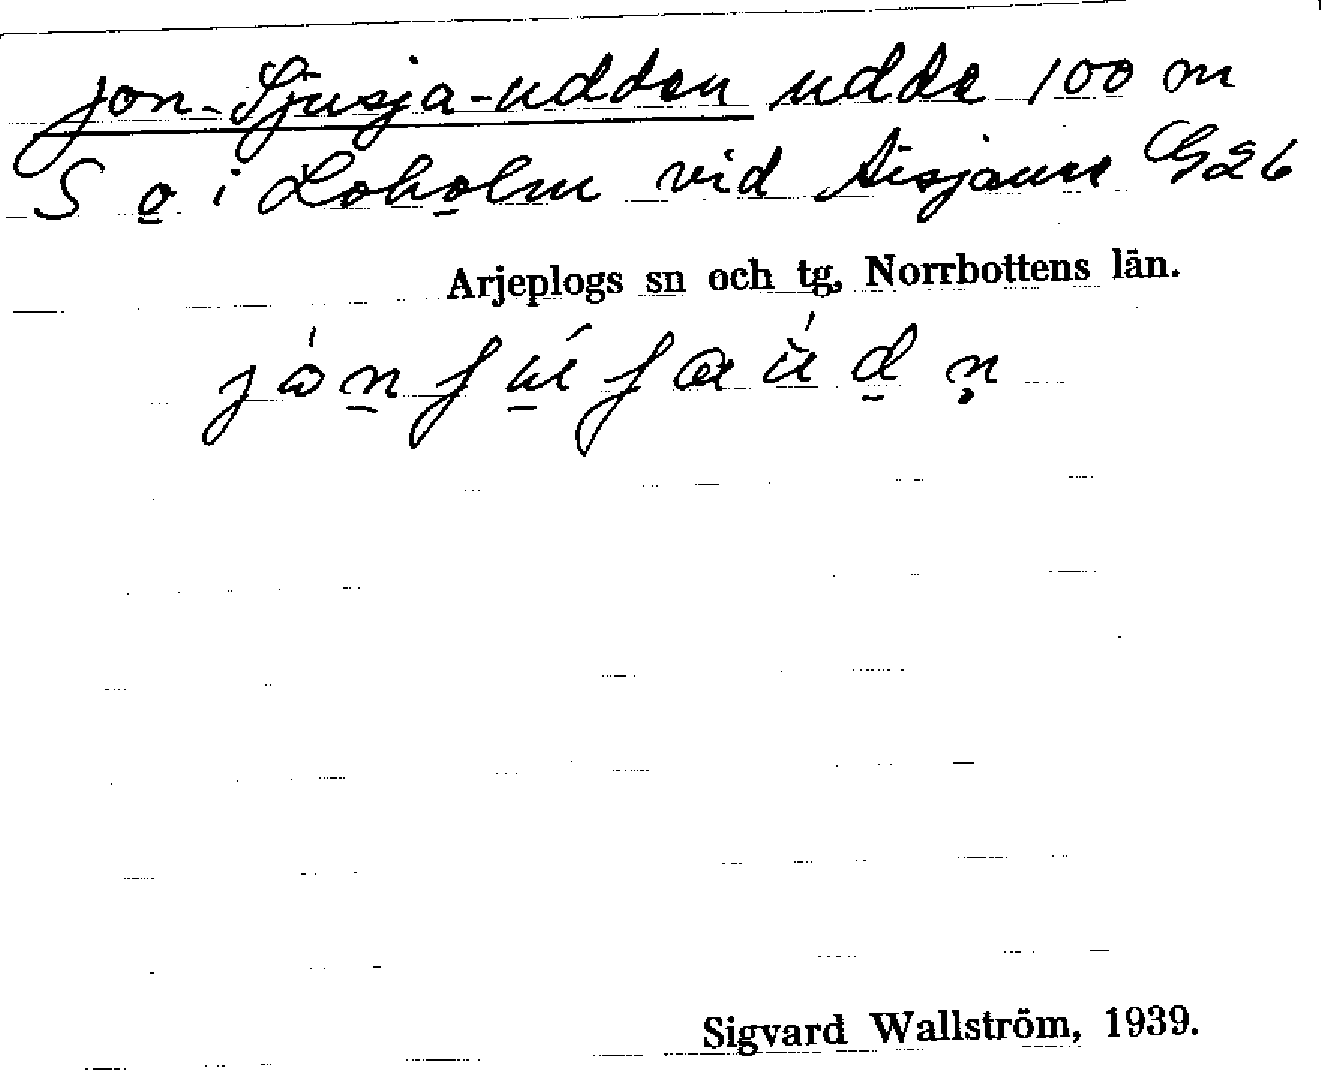 Jon-Sjusja-udden udde 100 m
S o i Loholm vid Aisjaure G26
Arjeplogs sn och tg, Norrbottens län.
Sigvard Wallström, 1939.